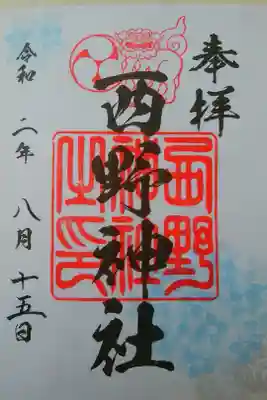 奉拝
西野神社
西野神社之印
令和二年八月十五日